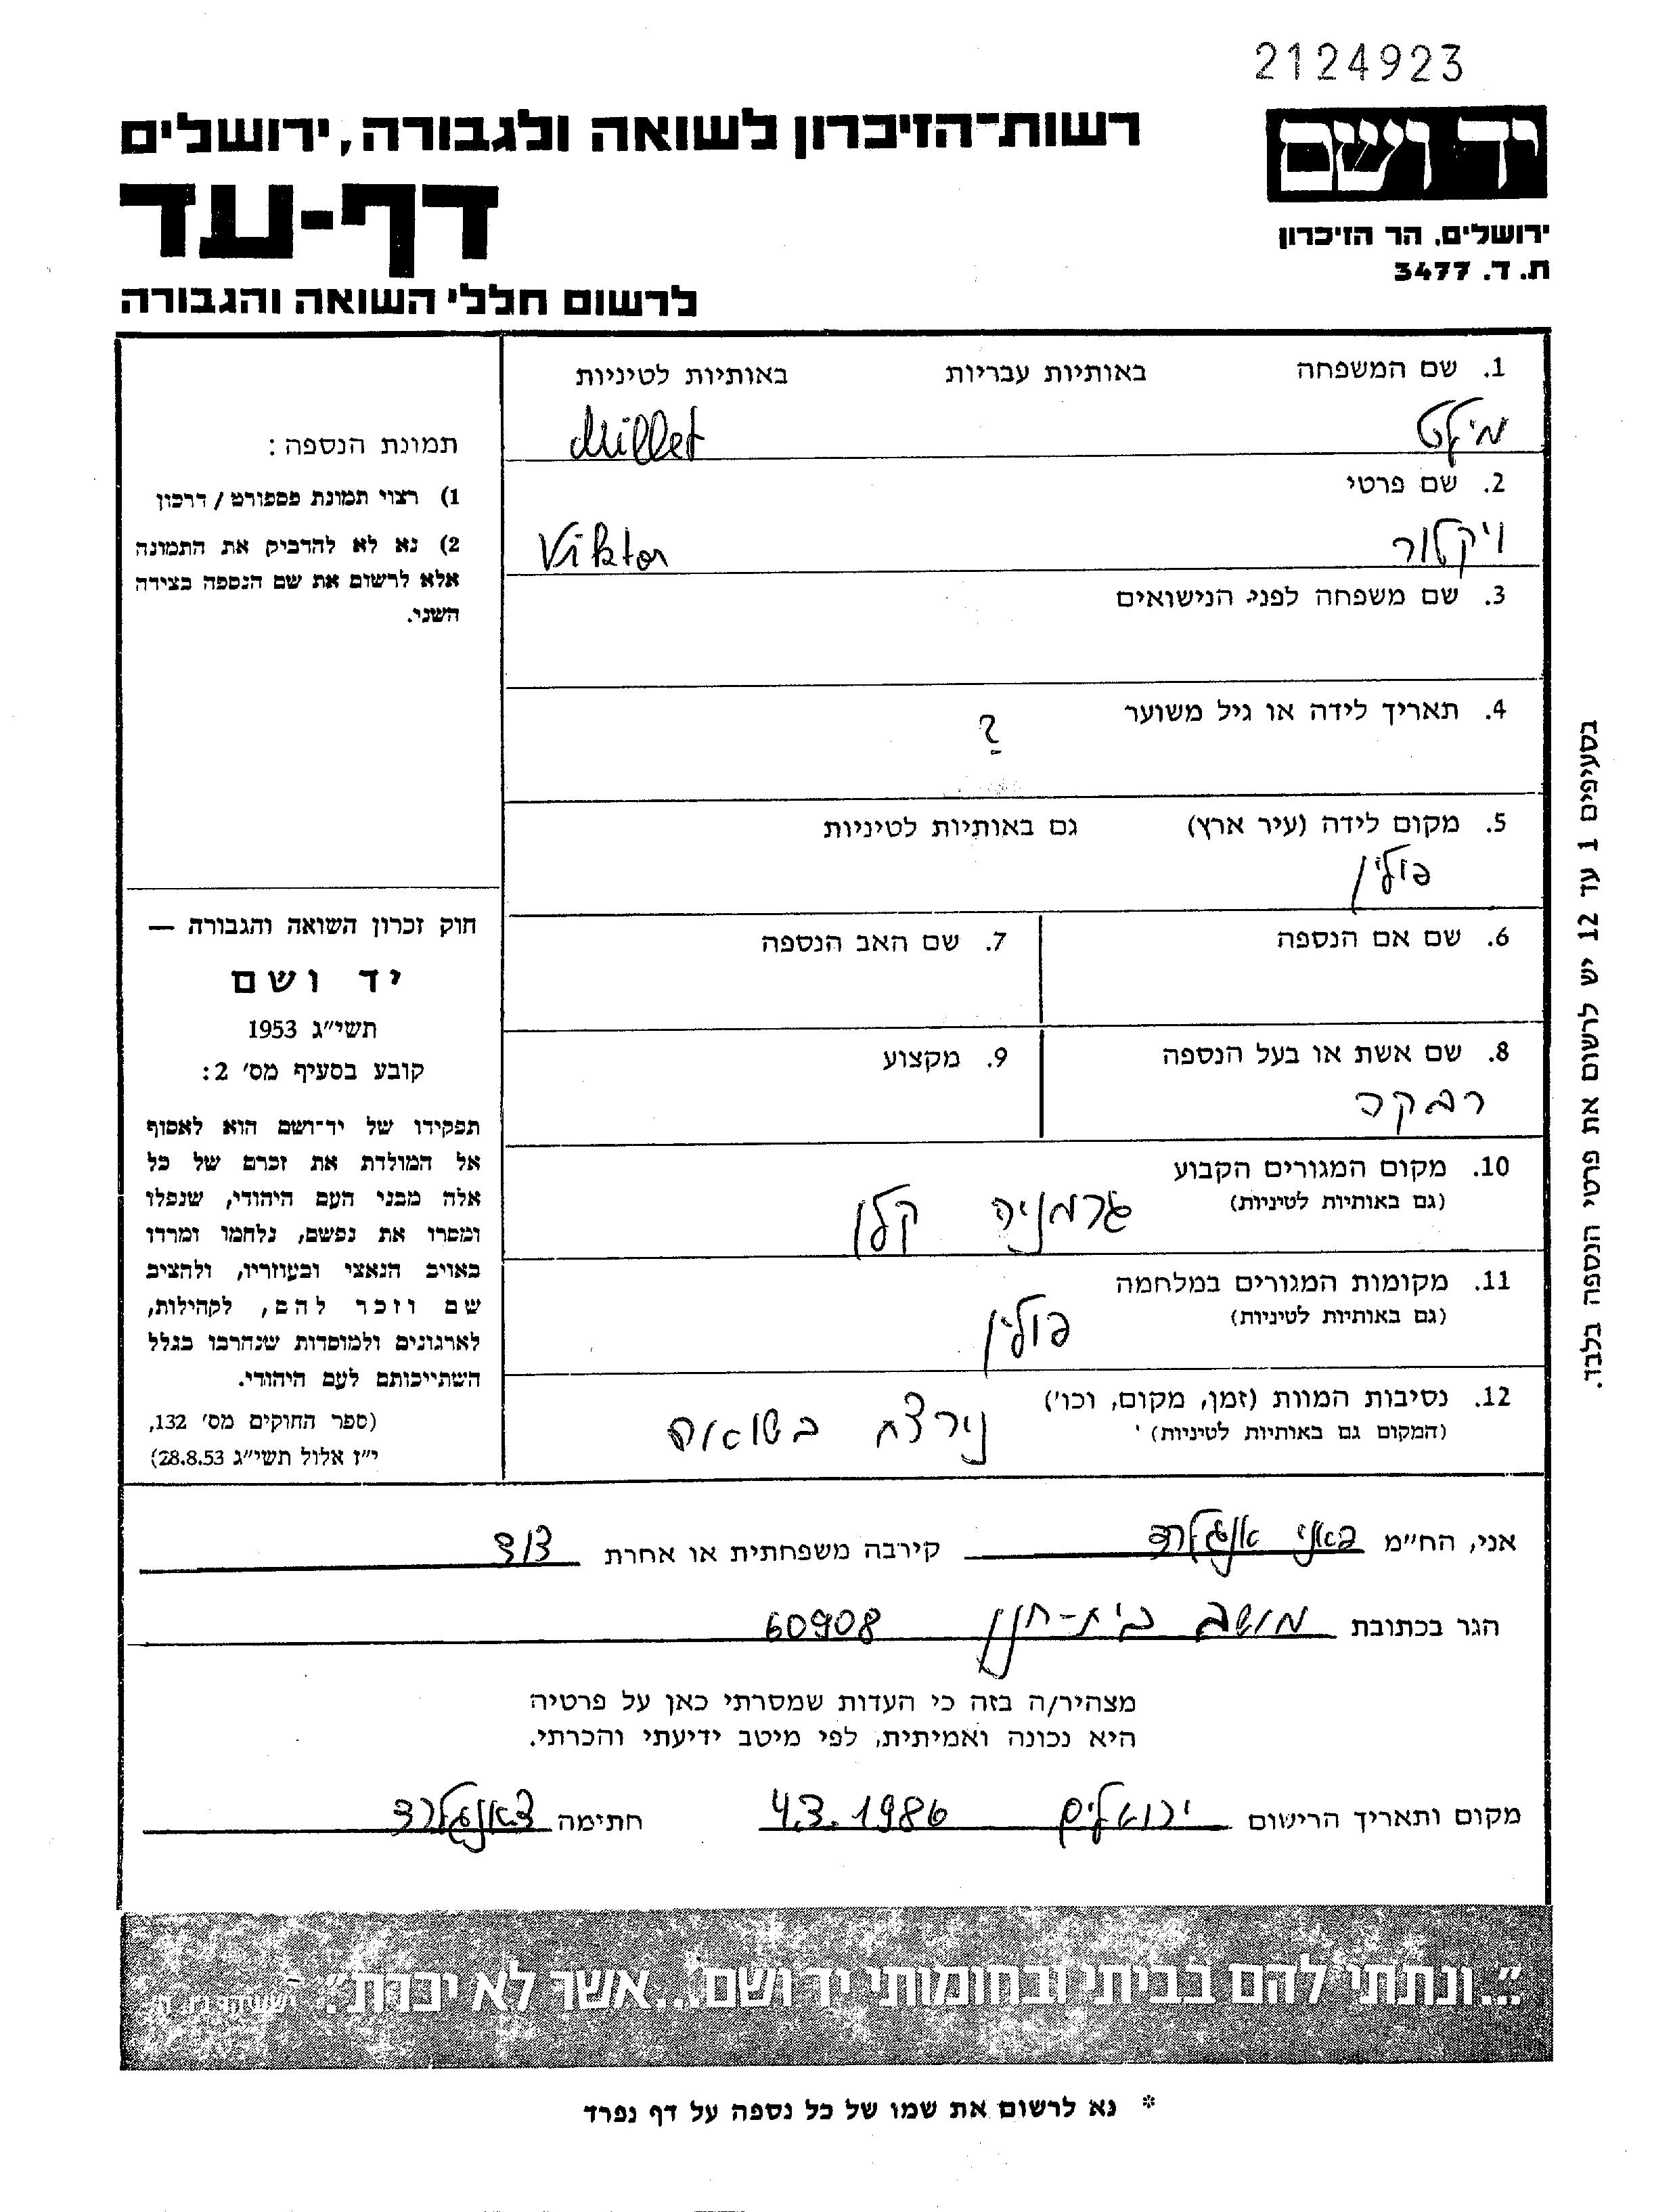 2124923
יד ושם
רשות־הזיכרון לשואה ולגבורה, ירושלים
דף-עד
ירושלים, הר הזיכרון
ת. ד. 3477
לרשום חללי השואה והגבורה
1. שם המשפחה באותיות עבריות באותיות לטיניות
מילט Millet
2. שם פרטי
ויקטור Viktor
3. שם משפחה לפני הנישואים
4. תאריך לידה או גיל משוער
?
5. מקום לידה (עיר ארץ) גם באותיות לטיניות
פולין
6. שם אם הנספה 7. שם האב הנספה
8. שם אשת או בעל הנספה 9. מקצוע
רבקה
10. מקום המגורים הקבוע
(גם באותיות לטיניות)
גרמניה קלן
11. מקומות המגורים במלחמה
(גם באותיות לטיניות)
פולין
12. נסיבות המוות (זמן, מקום, וכו')
(המקום גם באותיות לטיניות)
נירצח בשואה
תמונת הנספה:
1) רצוי תמונת פספורט / דרכון
2) נא לא להדביק את התמונה
אלא לרשום את שם הנספה בצידה
השני.
חוק זכרון השואה והגבורה —
יד ושם
תשי״ג 1953
קובע בסעיף מס' 2:
תפקידו של יד־ושם הוא לאסוף
אל המולדת את זכרם של כל
אלה מבני העם היהודי, שנפלו
ומסרו את נפשם, נלחמו ומרדו
באויב הנאצי ובעוזריו, ולהציב
שם וזכר להם, לקהילות,
לארגונים ולמוסדות שנחרבו בגלל
השתייכותם לעם היהודי.
(ספר החוקים מס' 132,
י״ז אלול תשי״ג 28.8.53)
בסעיפים 1 עד 12 יש לרשום את פרטי הנספה בלבד.
אני, הח״מ קירבה משפחתית או אחרת דוד
הגר בכתובת מושב בית-חנן 60908
מצהיר/ה בזה כי העדות שמסרתי כאן על פרטיה
היא נכונה ואמיתית, לפי מיטב ידיעתי והכרתי.
מקום ותאריך הרישום ירושלים 4.3.1986 חתימה
"...ונתתי להם בביתי ובחומותי יד ושם...אשר לא יכרת". ישעיהו נו, ה
* נא לרשום את שמו של כל נספה על דף נפרד